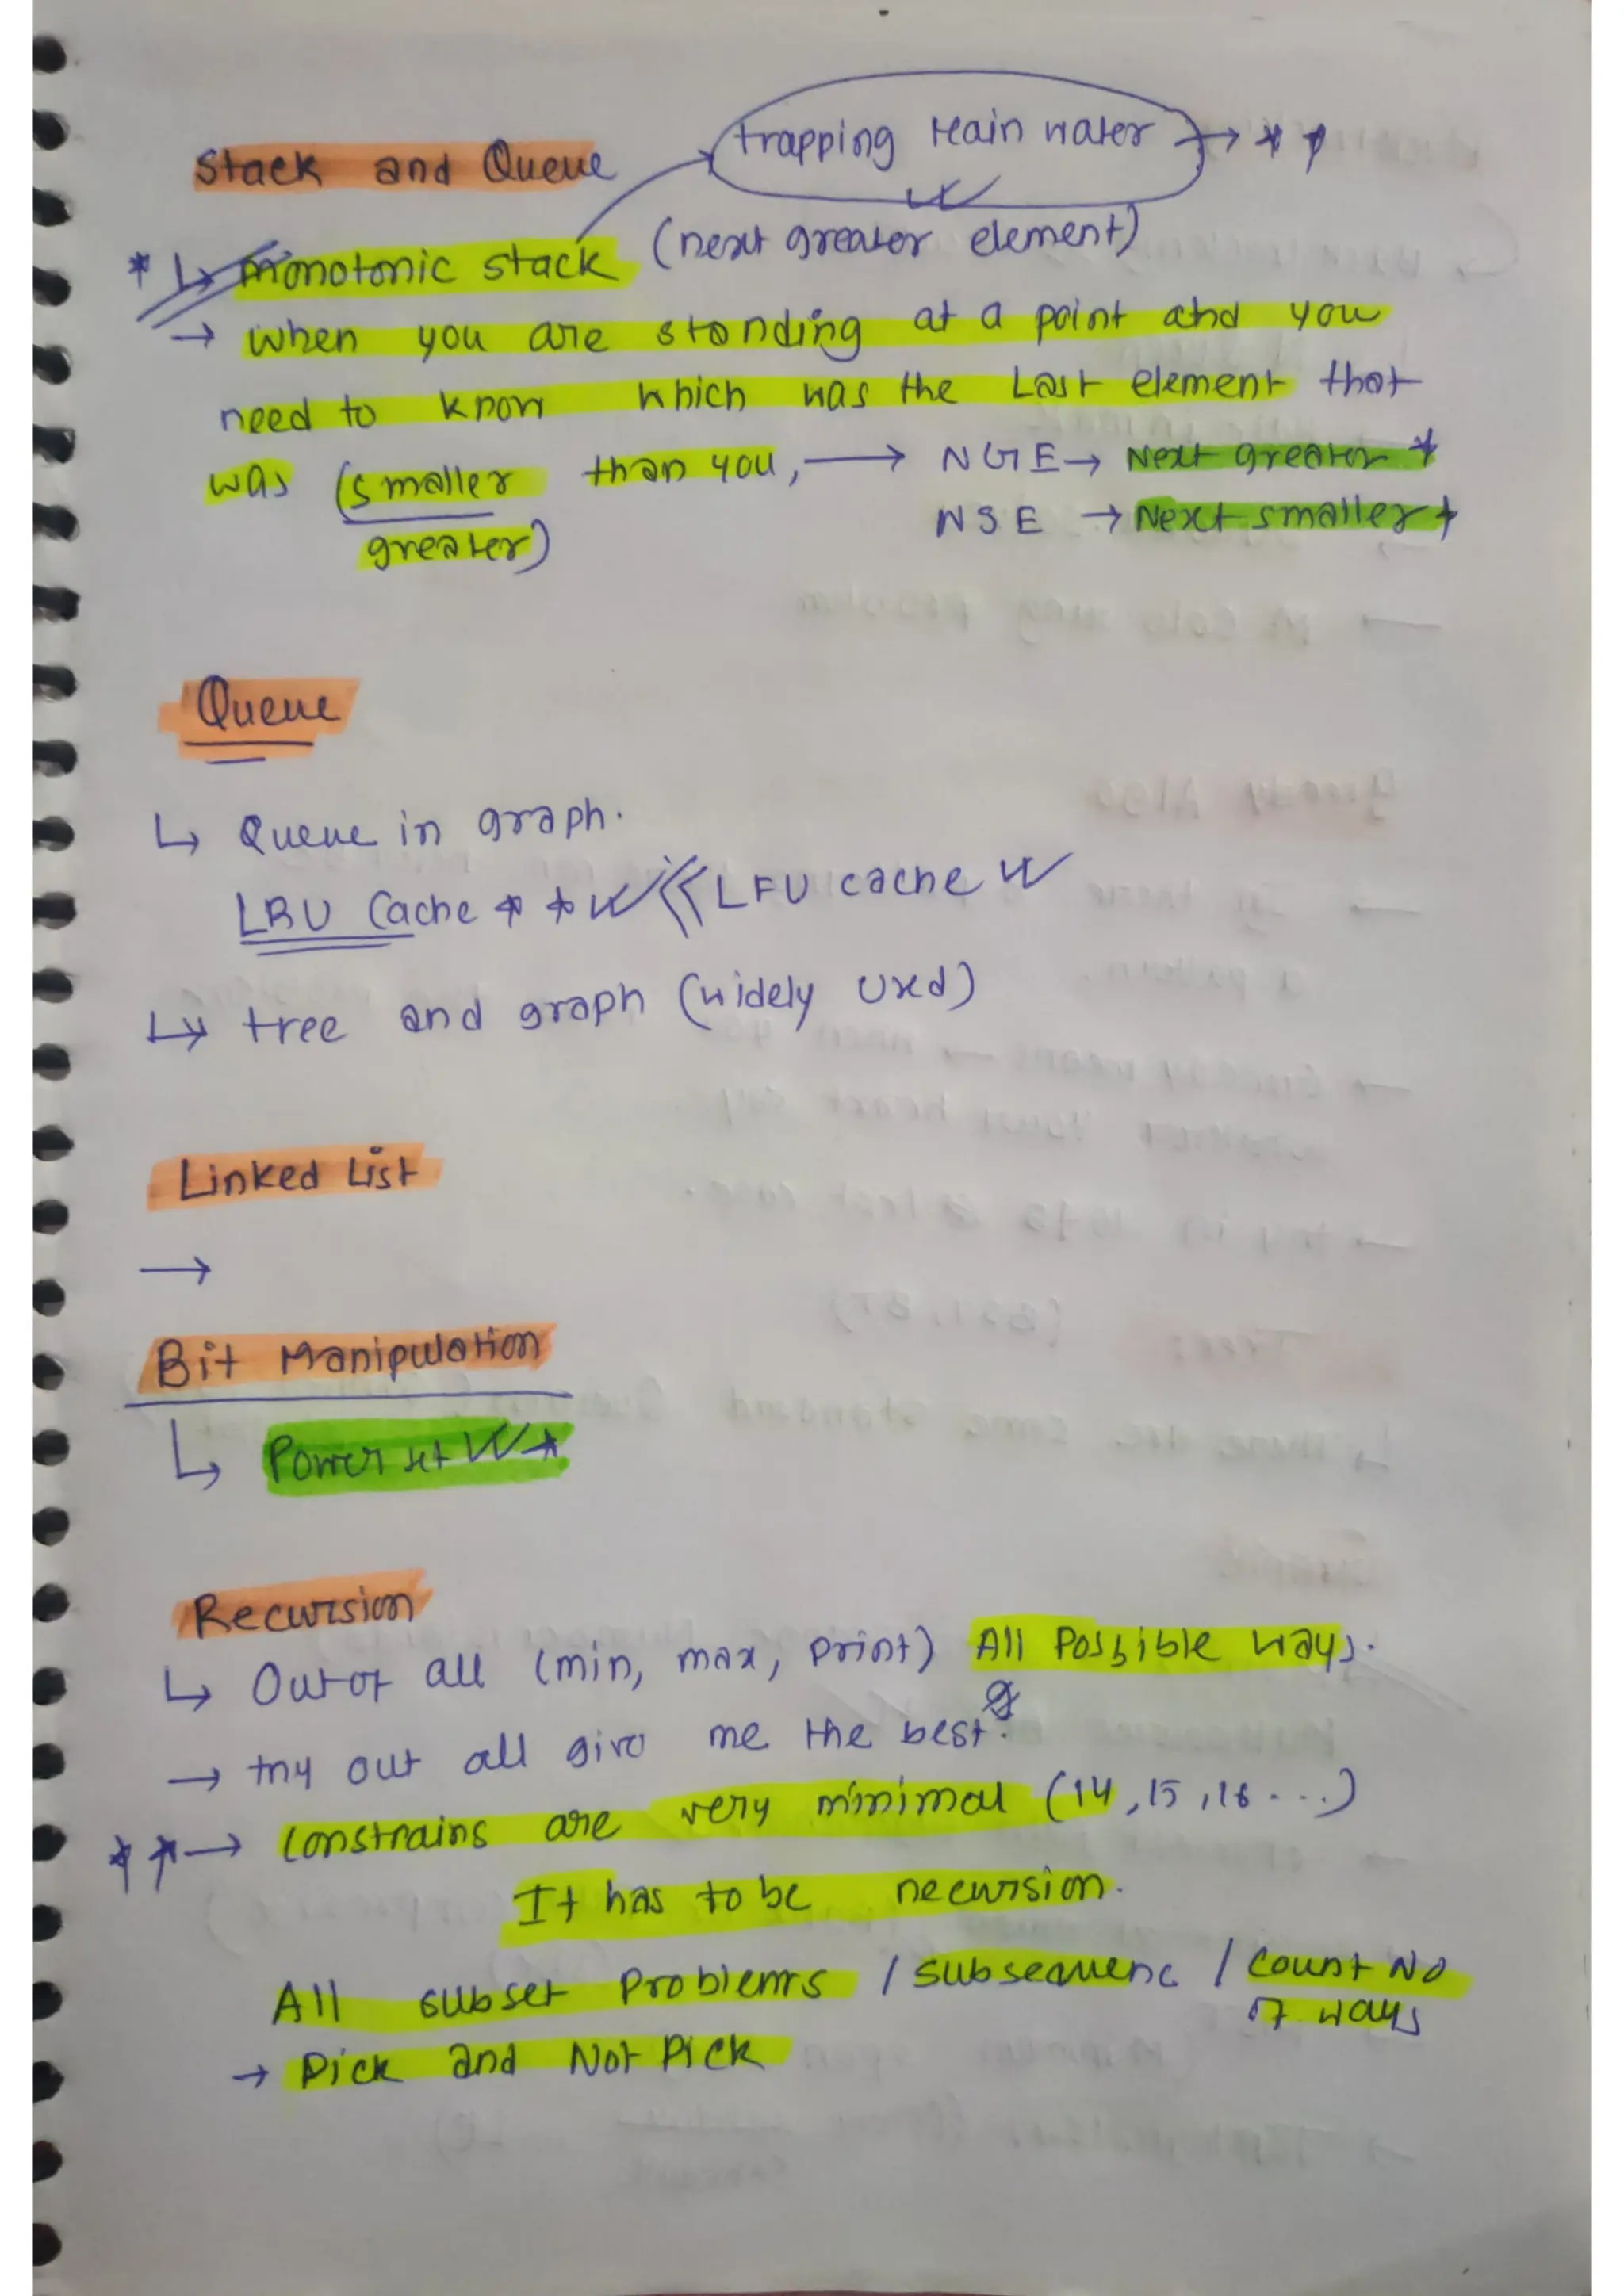 Stack and Queue
trapping Rain water → * *
* ↳ monotonic stack (next greater element)
→ when you are standing at a point and you
need to know which was the Last element that
was (smaller than you, → NGE → Next greater *
greater)
NSE → Next smaller *
Queue
↳ Queue in graph.
LRU Cache * * LFU cache
↳ tree and graph (widely used)
Linked List
→
Bit Manipulation
↳ Power set *
Recursion
↳ Out of all (min, max, print) All Possible ways.
→ try out all give me the best.
* * → Constrains are very minimal (14, 15, 16 ...)
It has to be recursion.
All subset Problems / subsequenc / Count No
of ways
→ Pick and Not Pick